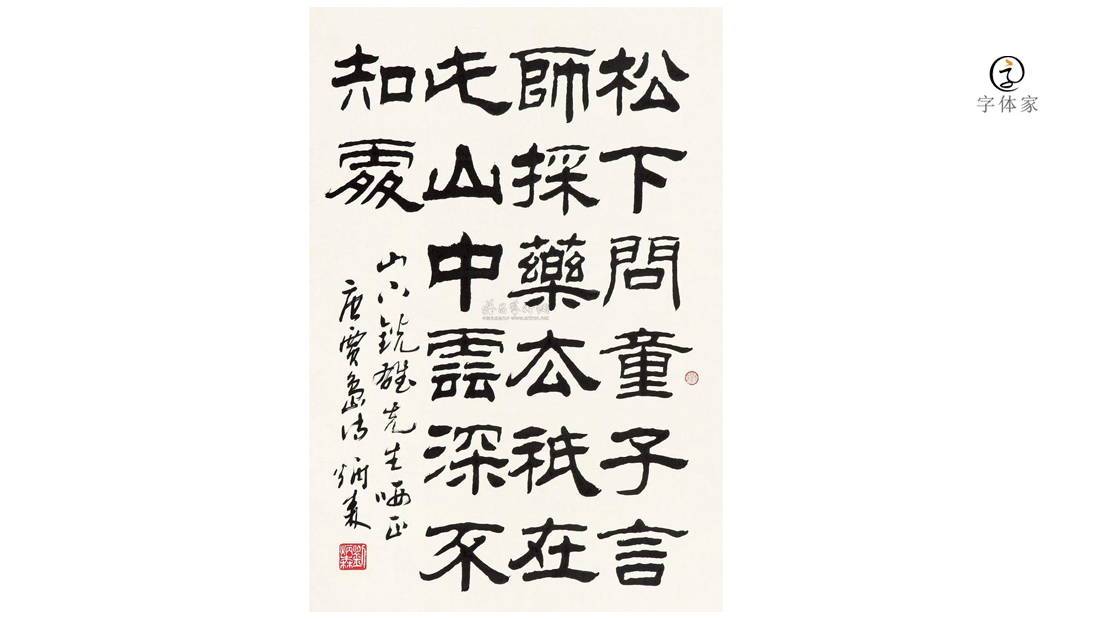 松下問童子言
師採藥去祇在
此山中雲深不
知處
山下銳雄先生哂正
唐賈島詩 炳森
字体家